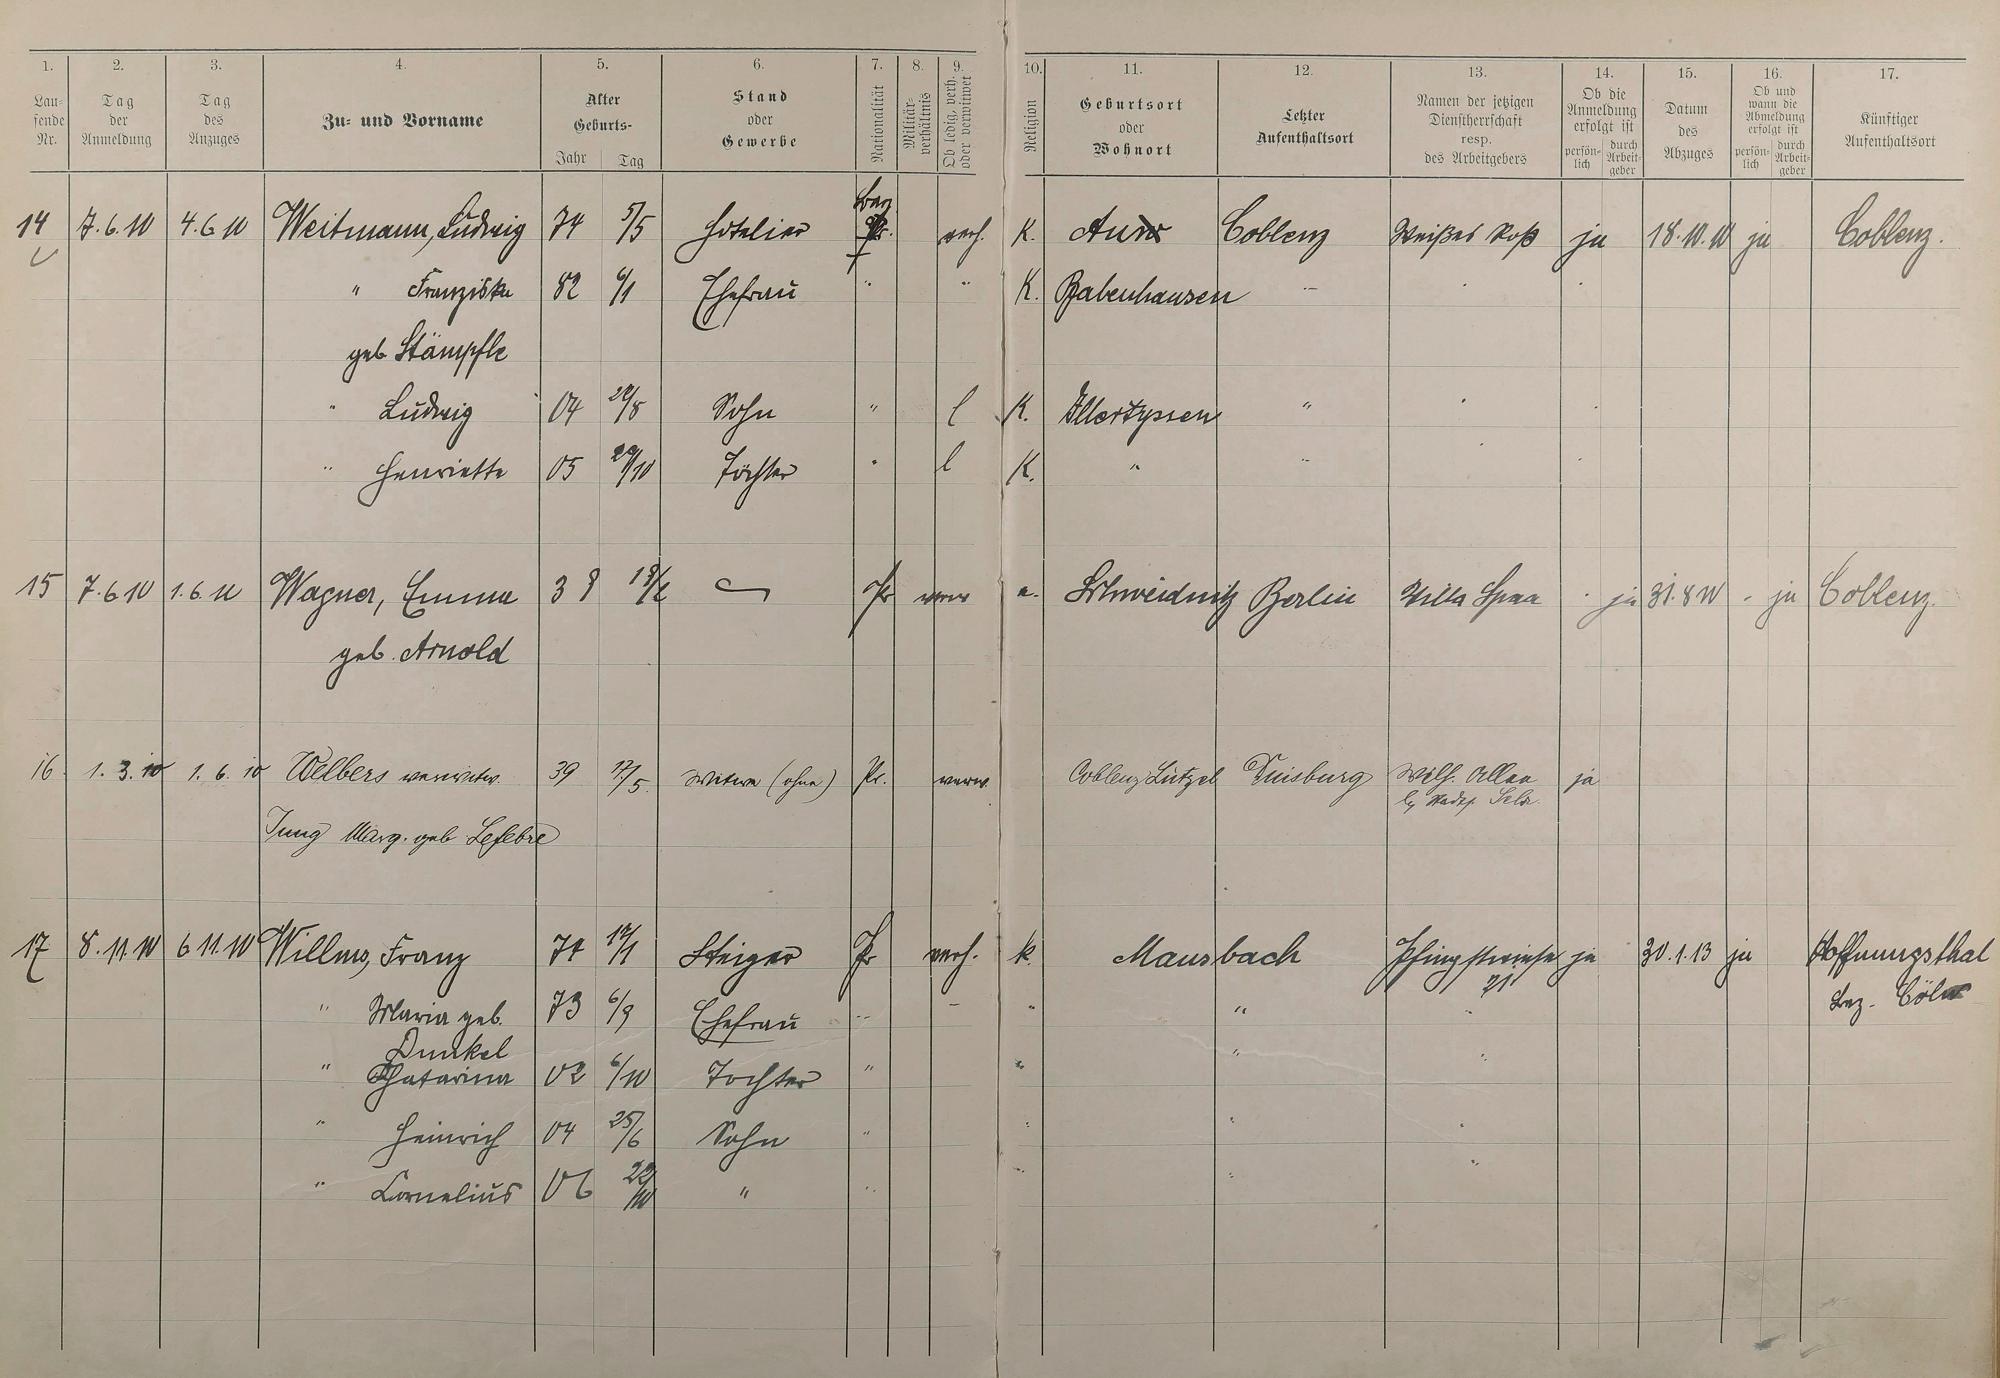 1. 2. 3. 4. 5. 6. 7. 8. 9. 10. 11. 12. 13. 14. 15. 16. 17.
Lau-
fende
Nr.
Tag
der
Anmeldung
Tag
des
Anzuges
Zu- und Vorname
Alter
Geburts-
Jahr Tag
Stand
oder
Gewerbe
Nationalität
Militär-
verhältnis
Ob ledig, verh.
oder verwitwet
Religion
Geburtsort
oder
Wohnort
Letzter
Aufenthaltsort
Namen der jetzigen
Dienstherrschaft
resp.
des Arbeitgebers
Ob die
Anmeldung
erfolgt ist
persön-
lich
durch
Arbeit-
geber
Datum
des
Abzuges
Ob und
wann die
Abmeldung
erfolgt ist
persön-
lich
durch
Arbeit-
geber
Künftiger
Aufenthaltsort
14 7.6.10 4.6.10 Weitmann, Ludwig 74 5/5 Hotelier verh. K. Coblenz Weißes Roß ja 18.10.10 ja Coblenz.
" Franziska 82 6/1 Ehefrau " " K. Babenhausen "
geb Stämpfle
" Ludwig 04 /8 Sohn " l K. Illertyssen "
" Henriette 05 29/10 Tochter " l K. " "
15 7.6.10 1.6.10 Wagner, Emma 38 Pr verw e. Schweidnitz Berlin Villa Spaa ja 31.8.10 ja Coblenz.
geb. Arnold
16 1.3.10 1.6.10 Welbers verwitw. 39 17/5. Witwe (ohne) Pr. verw. Coblenz Lützel Duisburg Wilh. ja
Jung Marg. geb Lefebre
17 8.11.10 6.11.10 Willms, Franz 74 Steiger Pr verh. K. Mausbach Pfingstwiese ja 30.1.13 ja Hoffnungsthal
21
Bez. Cöln
" Maria geb. 73 6/9 Ehefrau " " " "
Dunkel
" Chatarina 02 6/10 Tochter " " " "
" Heinrich 04 25/6 Sohn " " " "
" Cornelius 06 22/10 " " " " "